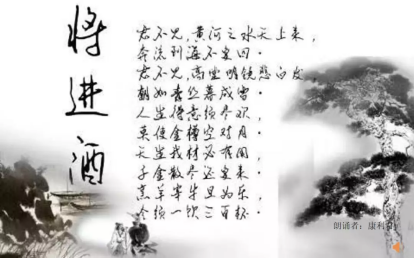 将进酒
君不见,黄河之水天上来,
奔流到海不复回。
君不见,高堂明镜悲白发,
朝如青丝暮成雪。
人生得意须尽欢,
莫使金樽空对月。
天生我材必有用,
千金散尽还复来。
烹羊宰牛且为乐,
会须一饮三百杯。
朗诵者：康利